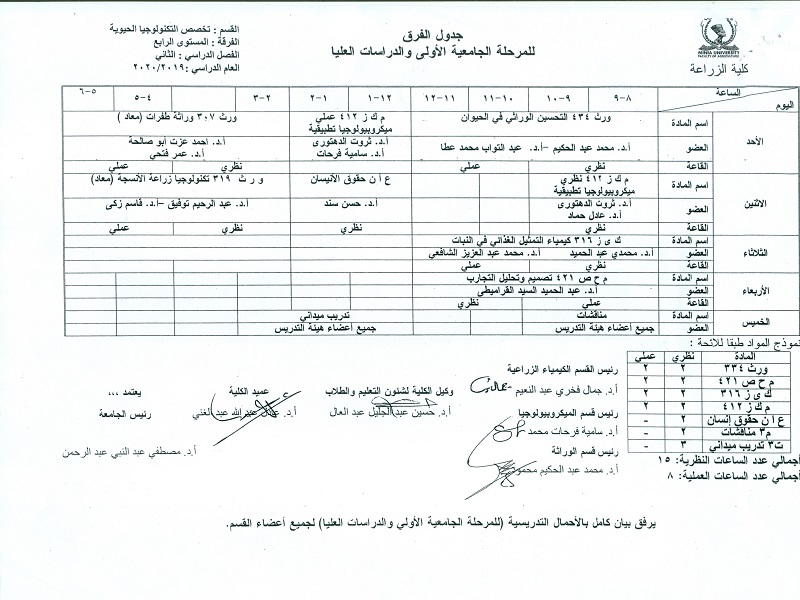 القسم : تخصص التكنولوجيا الحيوية
الفرقة : المستوى الرابع
الفصل الدراسي : الثاني
العام الدراسي : ٢٠٢٠/٢٠١٩
جدول الفرق
للمرحلة الجامعية الأولى والدراسات العليا
MINIA UNIVERSITY
FACULTY OF AGRICULTURE
كلية الزراعة
الساعة
اليوم
٨-٩ ٩-١٠ ١٠-١١ ١١-١٢ ١٢-١ ١-٢ ٢-٣ ٤-٥ ٥-٦
الأحد
اسم المادة ورث ٤٣٤ التحسين الوراثي في الحيوان م ك ز ٤١٢ عملي ميكروبيولوجيا تطبيقية ورث ٣٠٧ وراثة طفرات (معاد )
العضو أ.د. محمد عبد الحكيم –أ.د. عبد التواب محمد عطا أ.د. ثروت الدهتورى أ.د. سامية فرحات أ.د. احمد عزت أبو صالحة أ.د. عمر فتحي
القاعة نظري عملي نظري عملي
الاثنين
اسم المادة م ك ز ٤١٢ نظري ميكروبيولوجيا تطبيقية ع أ ن حقوق الانيسان و ر ث ٣١٩ تكنولوجيا زراعة الانسجة (معاد)
العضو أ.د. ثروت الدهتورى أ.د. عادل حماد أ.د. حسن سند أ.د. عبد الرحيم توفيق –أ.د. قاسم زكى
القاعة نظري نظري نظري عملي
الثلاثاء
اسم المادة ك ى ز ٣١٦ كيمياء التمثيل الغذائي في النبات
العضو أ.د. محمدي عبد الحميد أ.د. محمد عبد العزيز الشافعي
القاعة نظري عملي
الأربعاء
اسم المادة م ح ص ٤٢١ تصميم وتحليل التجارب
العضو أ.د. عبد الحميد السيد القراميطى
القاعة عملي نظري
الخميس
اسم المادة مناقشات تدريب ميداني
العضو جميع أعضاء هيئة التدريس جميع أعضاء هيئة التدريس
نموذج المواد طبقا للائحة :
المادة نظري عملي
ورث ٣٣٤ ٢ ٢
م ح ص ٤٢١ ٢ ٢
ك ى ز ٣١٦ ٢ ٢
م ك ز ٤١٢ ٢ ٢
ع أ ن حقوق إنسان ٢ -
م٣ مناقشات ٢ -
ت٣ تدريب ميداني ٣ -
أجمالي عدد الساعات النظرية: ١٥
أجمالي عدد الساعات العملية: ٨
رئيس القسم الكيمياء الزراعية
أ.د. جمال فخري عبد النعيم
رئيس قسم الميكروبيولوجيا
أ.د. سامية فرحات محمد
رئيس قسم الوراثة
أ.د. محمد عبد الحكيم محمود
وكيل الكلية لشئون التعليم والطلاب
أ.د. حسين عبد الجليل عبد العال
عميد الكلية
أ.د. عبد الله عبد الغني
يعتمد ،،،
رئيس الجامعة
أ.د. مصطفي عبد النبي عبد الرحمن
يرفق بيان كامل بالأحمال التدريسية (للمرحلة الجامعية الأولي والدراسات العليا) لجميع أعضاء القسم.